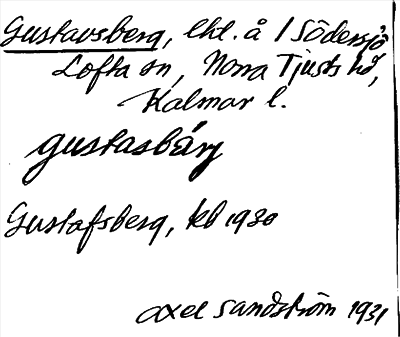 Gustavsberg, lht. å 1 Södersjö
Lofta sn, Norra Tjusts hd,
Kalmar l.
gustasbárj
Gustafsberg, kb 1930
Axel Sandström 1931